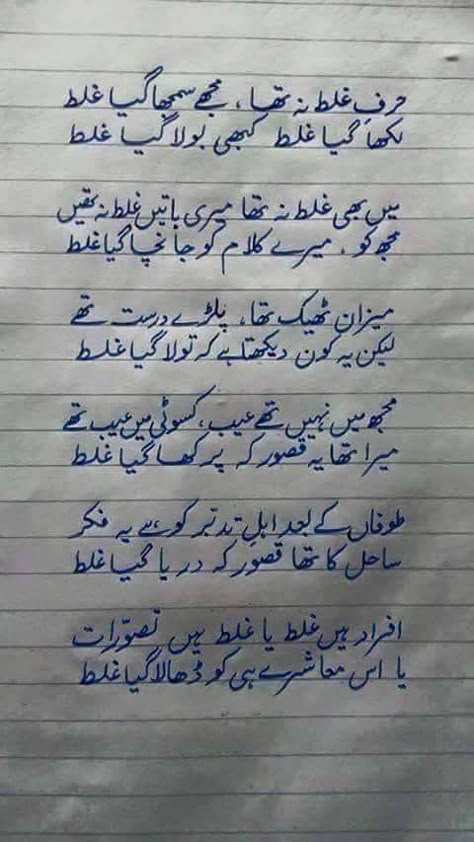 حرفِ غلط نہ تھا، مجھے سمجھا گیا غلط
لکھا گیا غلط کبھی بولا گیا غلط
میں بھی غلط نہ تھا میری باتیں غلط نہ تھیں
مجھ کو، میرے کلام کو جانچا گیا غلط
میزان ٹھیک تھا، پلڑے درست تھے
لیکن یہ کون دیکھتا ہے کہ تولا گیا غلط
مجھ میں نہیں تھے عیب، کسوٹی میں عیب تھے
میرا تھا یہ قصور کہ پرکھا گیا غلط
طوفاں کے بعد اہلِ تدبّر کو ہے یہ فکر
ساحل کا تھا قصور کہ دریا گیا غلط
افراد ہیں غلط یا غلط ہیں تصوّرات
یا اس معاشرے ہی کو ڈھالا گیا غلط